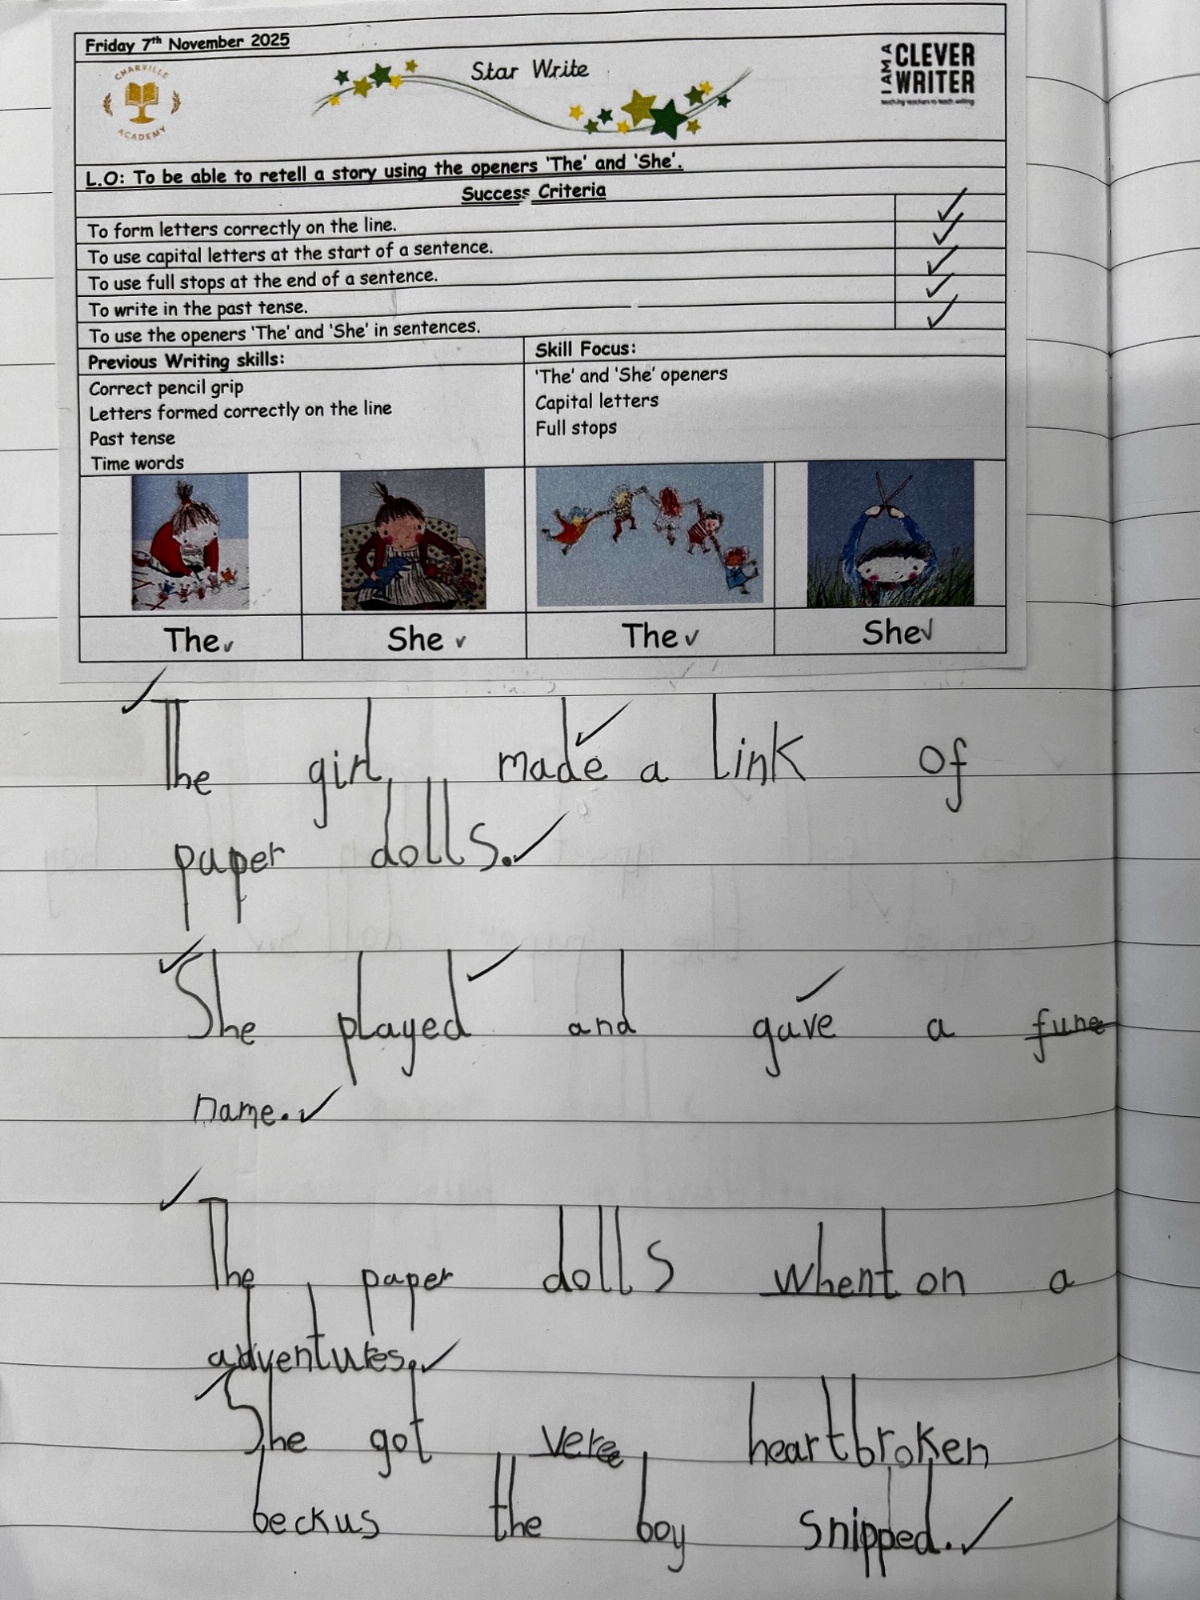 Friday 7th November 2025
CHARVILLE ACADEMY
Star Write
I AM A CLEVER WRITER
teaching teachers to teach writing
L.O: To be able to retell a story using the openers 'The' and 'She'.
Success Criteria
To form letters correctly on the line. ✓
To use capital letters at the start of a sentence. ✓
To use full stops at the end of a sentence. ✓
To write in the past tense. ✓
To use the openers 'The' and 'She' in sentences. ✓
Previous Writing skills:
Correct pencil grip
Letters formed correctly on the line
Past tense
Time words
Skill Focus:
'The' and 'She' openers
Capital letters
Full stops
The ✓ She ✓ The ✓ She ✓
The girl made a link of
paper dolls.
She played and gave a fune
name.
The paper dolls whent on a
adventures.
She got vere heartbroken
beckus the boy snipped.